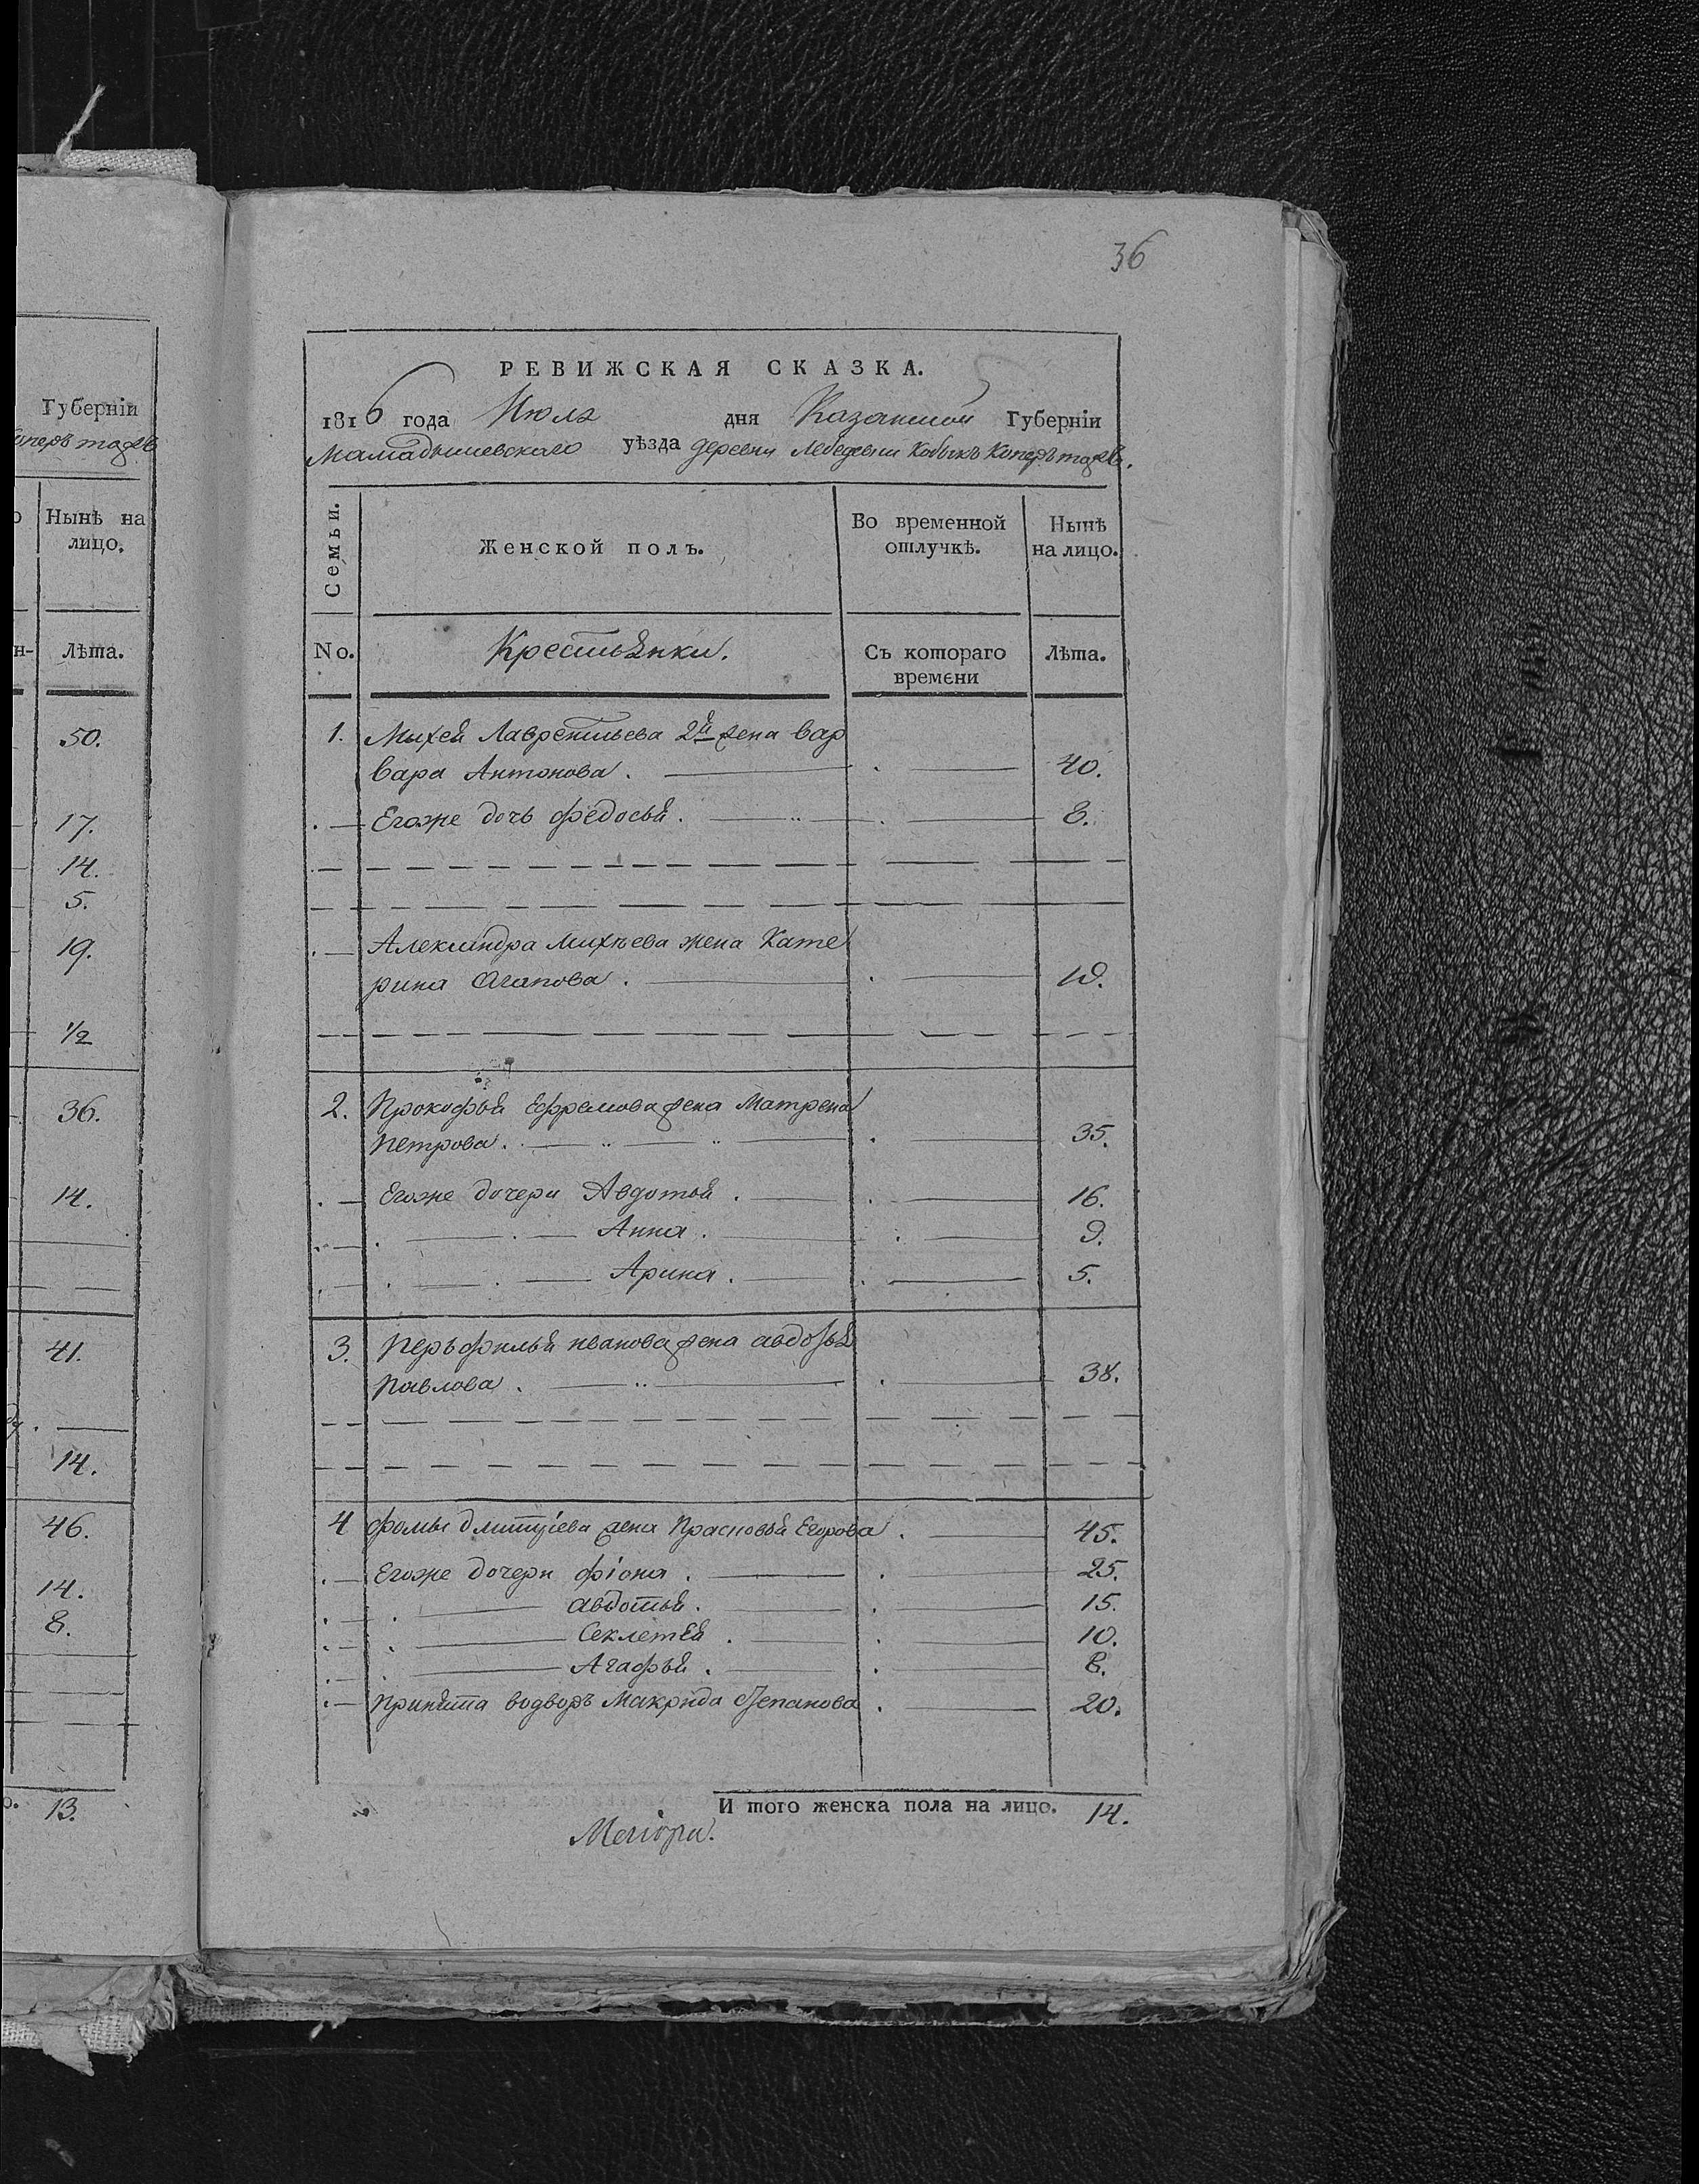 Губерніи
Нынѣ на
лицо.
Лѣта.
50.
17.
14.
5.
19.
1/2
36.
14.
41.
14.
46.
14.
8.
13.
36
РЕВИЖСКАЯ СКАЗКА.
1816 года Июля дня Казанской Губерніи
Мамадышевскаго уѣзда деревни Лебедевки Кобыкъ Коперъ тожъ.
Семьи.
Женской полъ.
Во временной
отлучкѣ.
Нынѣ
на лицо.
No.
Крестьянки.
Съ котораго
времени
Лѣта.
1. Михея Лаврентьева 2я жена вар
вара Антонова. 40.
Егоже дочь Федосья. 8.
Александра Михѣева жена Кате
рина Агапова. 19.
2. Прокофья Ефремова жена Матрена
Петрова. 35.
Егоже дочери Авдотья. 16.
Анна. 9.
Арина. 5.
3. Перьфилья иванова жена авдотья
Павлова. 38.
4 фомы дмитріева жена Прасковья Егорова. 45.
Егоже дочери фіона. 25.
авдотья. 15.
Секлетея. 10.
Агафья. 8.
Принята водворъ Макрида степанова. 20.
И того женска пола на лицо. 14.